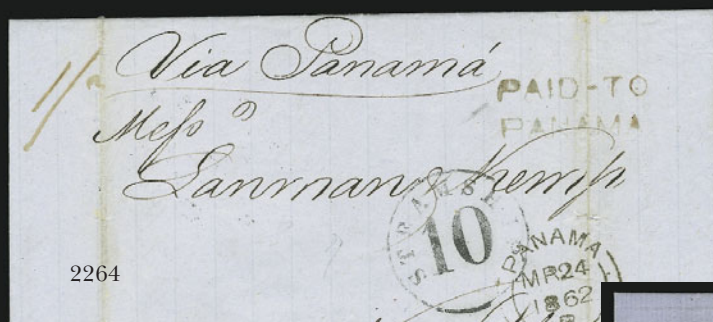 1/-
Via Panamá
PAID-TO
PANAMA
Messrs
Lanman & Kemp
STEAMSHIP
10
PANAMA
MR24
1862
2264